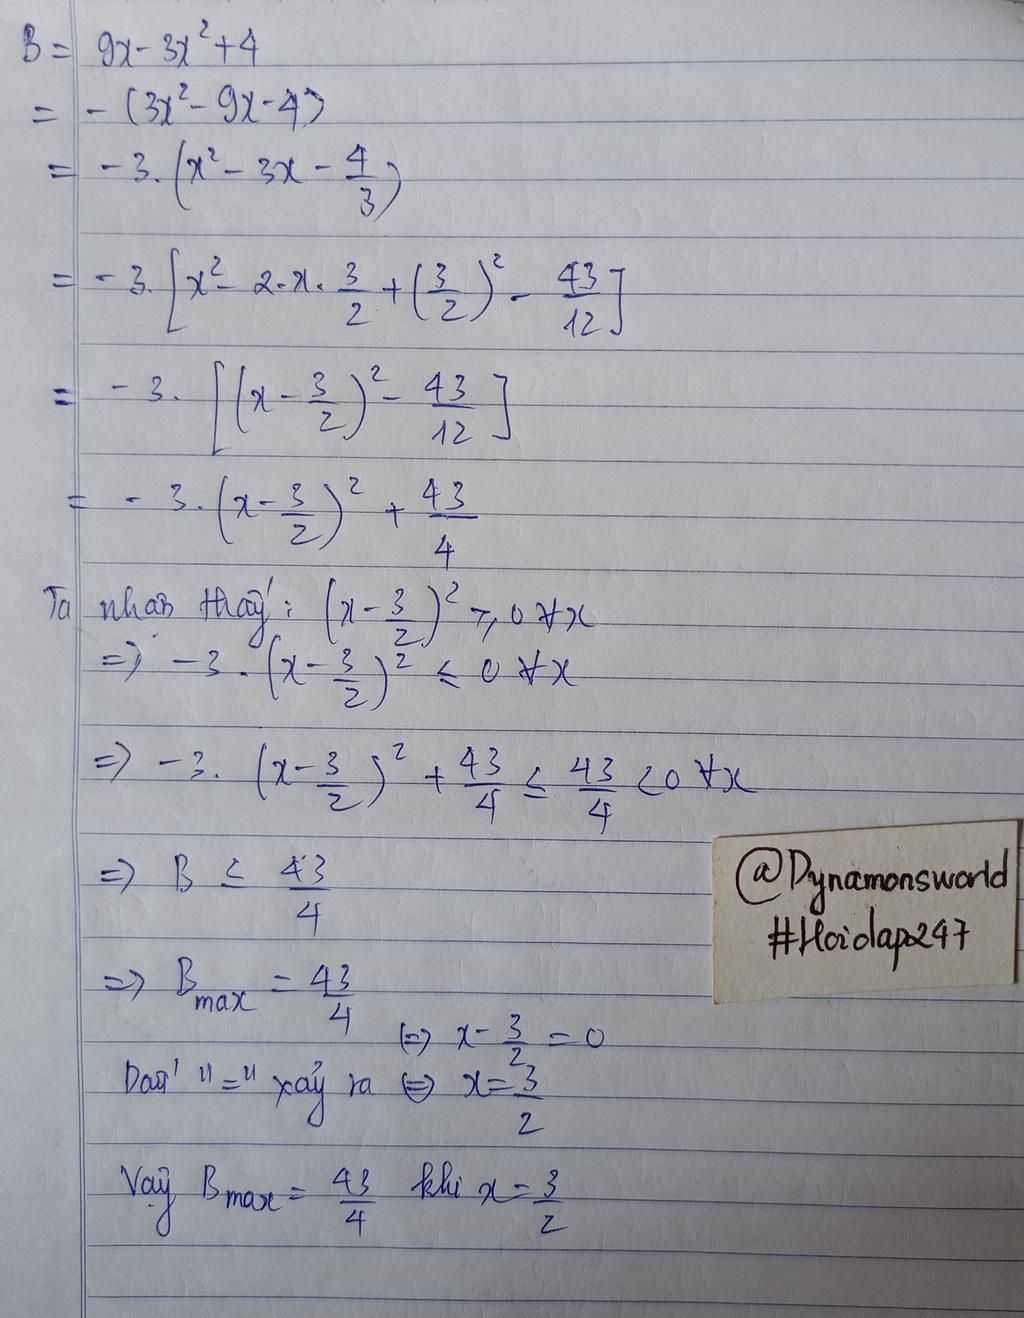 B = 9x - 3x² + 4
= - (3x² - 9x - 4)
= - 3. (x² - 3x - 4/3)
= - 3. [x² - 2.x. 3/2 + (3/2)² - 43/12]
= - 3. [(x - 3/2)² - 43/12]
= - 3. (x - 3/2)² + 43/4
Ta nhận thấy : (x - 3/2)² ≥ 0 ∀x
=> - 3. (x - 3/2)² ≤ 0 ∀x
=> - 3. (x - 3/2)² + 43/4 ≤ 43/4 < 0 ∀x
=> B ≤ 43/4
=> Bmax = 43/4
<=> x - 3/2 = 0
Dấu "=" xảy ra <=> x = 3/2
Vậy Bmax = 43/4 khi x = 3/2
@Dynamonsworld
#Hoidap247